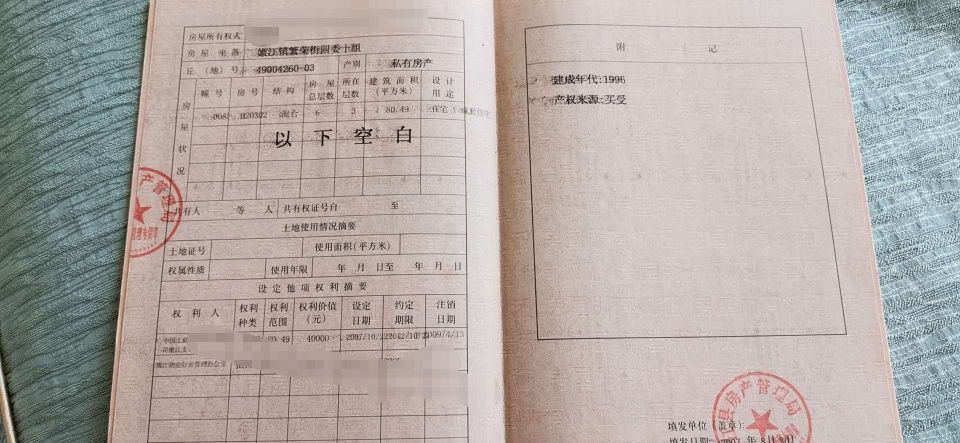 房屋所有权人
房屋坐落 嫩江镇繁荣街四委十组
丘（地）号 49004260-03 产别 私有房产
房屋状况
幢号 房号 结构 房屋总层数 所在层数 建筑面积(平方米) 设计用途
0082 020302 混合 6 3 80.49 住宅
以下空白
共有人 等 人 共有权证号自 至
土地使用情况摘要
土地证号 使用面积(平方米)
权属性质 使用年限 年 月 日至 年 月 日
设定他项权利摘要
权利人 权利种类 权利范围 权利价值(元) 设定日期 约定期限 注销日期
80.49 40000 2009/4/13
产管理局
附 记
建成年代:1996
产权来源:买受
县房产管理局
填发单位（盖章）:
填发日期